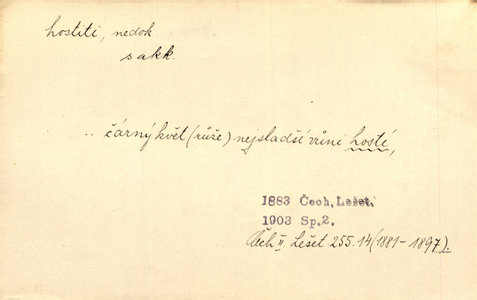 hostiti, nedok.
s akk.
.. čárný květ (růže) nejsladší vůni hostí,
1883 Čech, Lešet.
1903 Sp.2.
Čech II Lešet 255.14 (1881-1897).